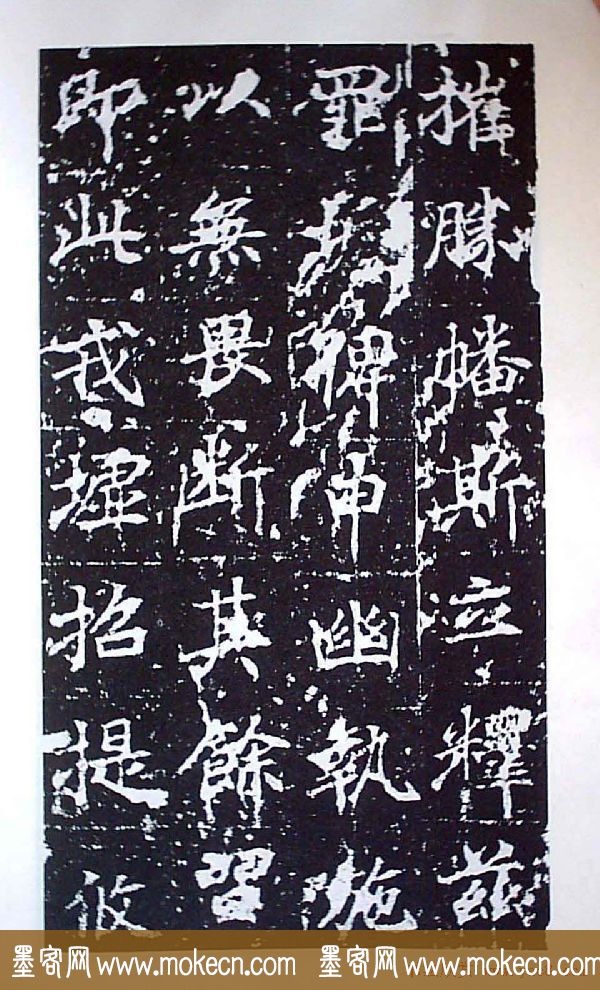 摧勝幡斯立釋茲
罪俾申幽執施
以無畏斷其餘習
即此戎墟招提攸
墨客网 www.mokecn.com 墨客网 www.mokecn.com